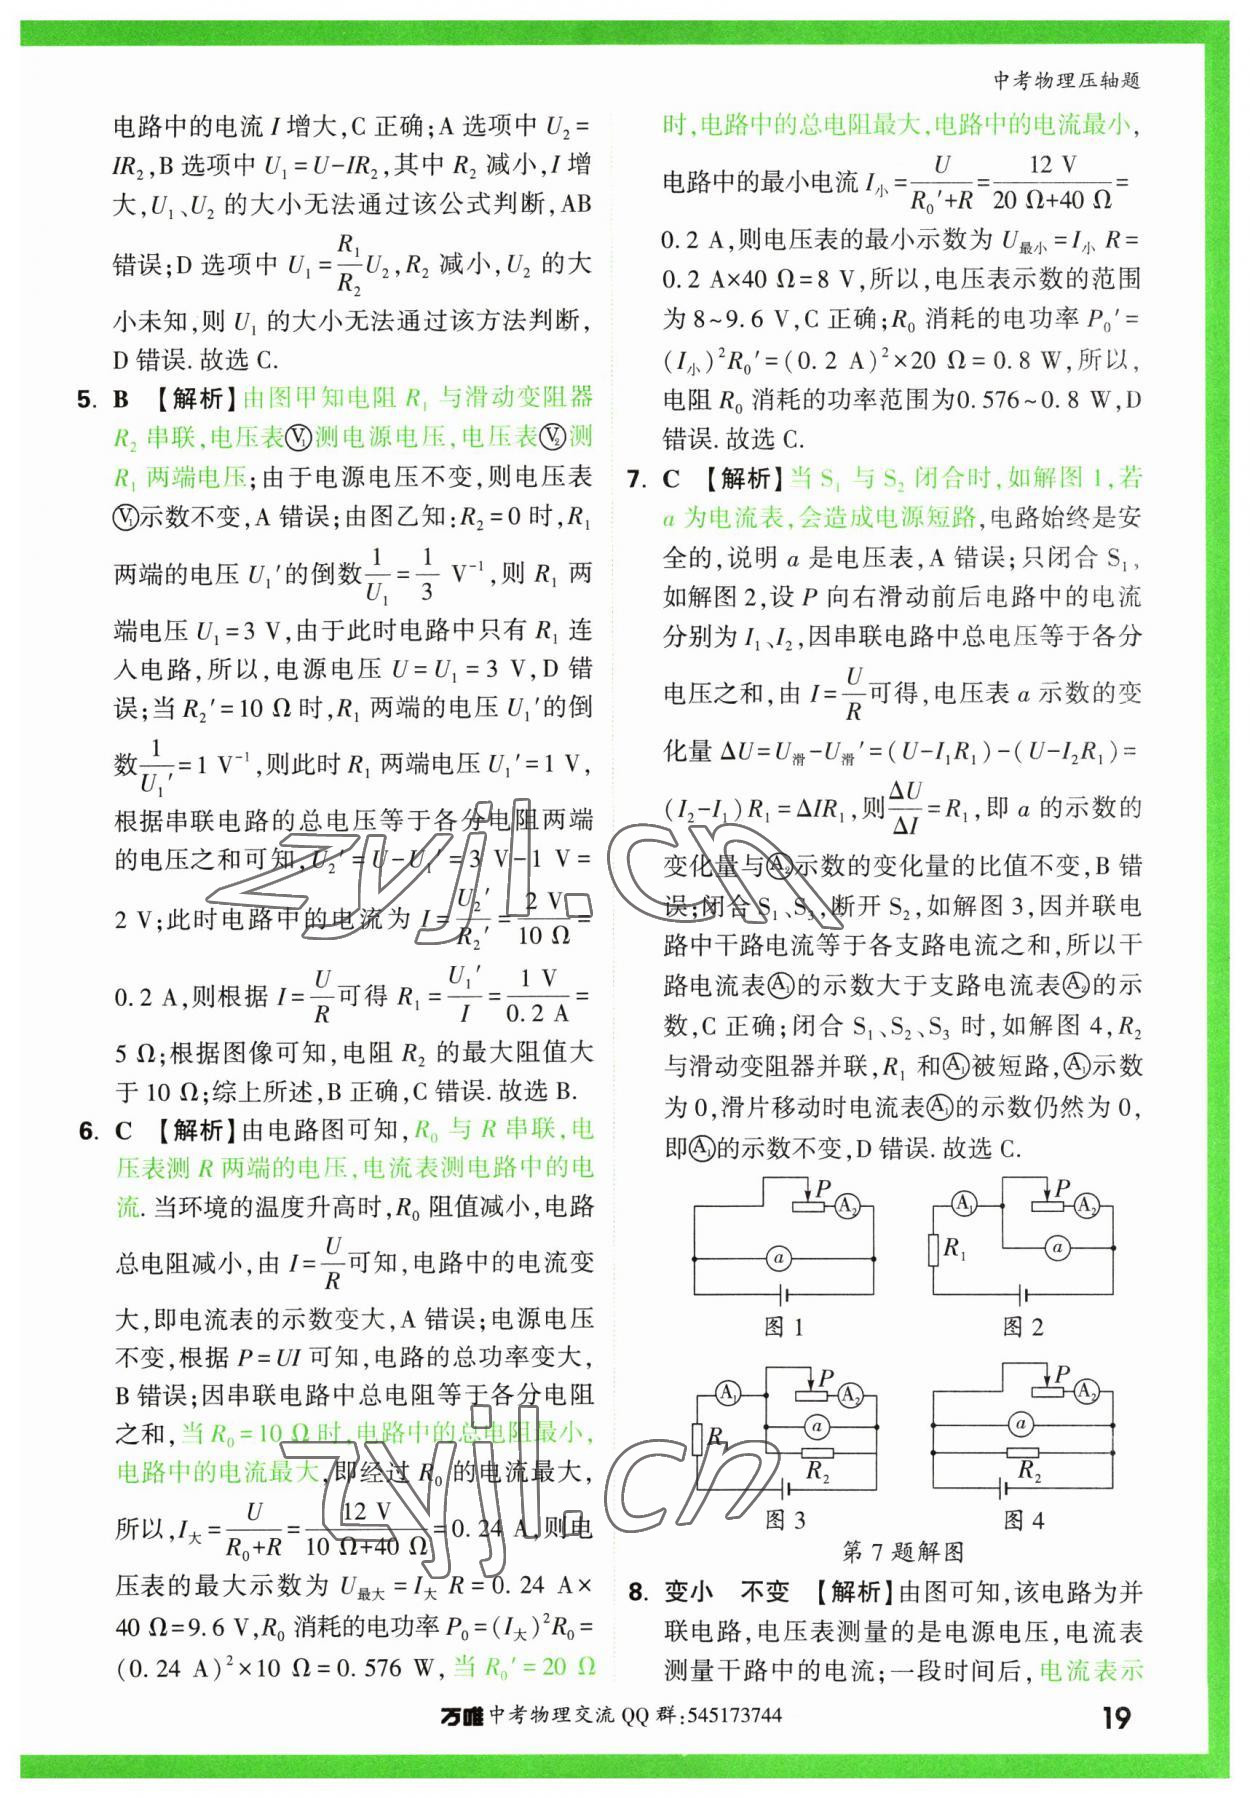 中考物理压轴题
电路中的电流 I 增大,C 正确;A 选项中 U₂=
IR₂,B 选项中 U₁=U-IR₂,其中 R₂ 减小,I 增
大,U₁、U₂ 的大小无法通过该公式判断,AB
错误;D 选项中 U₁=R₁/R₂U₂,R₂ 减小,U₂ 的大
小未知,则 U₁ 的大小无法通过该方法判断,
D 错误.故选 C.
5. B 【解析】由图甲知电阻 R₁ 与滑动变阻器
R₂ 串联,电压表Ⓥ₁测电源电压,电压表Ⓥ₂测
R₁ 两端电压;由于电源电压不变,则电压表
Ⓥ₁示数不变,A 错误;由图乙知:R₂=0 时,R₁
两端的电压 U₁′的倒数1/U₁=1/3 V⁻¹,则 R₁ 两
端电压 U₁=3 V,由于此时电路中只有 R₁ 连
入电路,所以,电源电压 U=U₁=3 V,D 错
误;当 R₂′=10 Ω 时,R₁ 两端的电压 U₁′的倒
数1/U₁′=1 V⁻¹,则此时 R₁ 两端电压 U₁′=1 V,
根据串联电路的总电压等于各分电阻两端
的电压之和可知,U₂′=U-U₁′=3 V-1 V=
2 V;此时电路中的电流为 I=U₂′/R₂′=2 V/10 Ω=
0.2 A,则根据 I=U/R可得 R₁=U₁′/I=1 V/0.2 A=
5 Ω;根据图像可知,电阻 R₂ 的最大阻值大
于 10 Ω;综上所述,B 正确,C 错误.故选 B.
6. C 【解析】由电路图可知,R₀ 与 R 串联,电
压表测 R 两端的电压,电流表测电路中的电
流.当环境的温度升高时,R₀ 阻值减小,电路
总电阻减小,由 I=U/R可知,电路中的电流变
大,即电流表的示数变大,A 错误;电源电压
不变,根据 P=UI 可知,电路的总功率变大,
B 错误;因串联电路中总电阻等于各分电阻
之和,当 R₀=10 Ω 时,电路中的总电阻最小,
电路中的电流最大,即经过 R₀ 的电流最大,
所以,I大=U/(R₀+R)=12 V/(10 Ω+40 Ω)=0.24 A,则电
压表的最大示数为 U最大=I大 R=0.24 A×
40 Ω=9.6 V,R₀ 消耗的电功率 P₀=(I大)²R₀=
(0.24 A)²×10 Ω=0.576 W,当 R₀′=20 Ω
时,电路中的总电阻最大,电路中的电流最小,
电路中的最小电流 I小=U/(R₀′+R)=12 V/(20 Ω+40 Ω)=
0.2 A,则电压表的最小示数为 U最小=I小 R=
0.2 A×40 Ω=8 V,所以,电压表示数的范围
为 8~9.6 V,C 正确;R₀ 消耗的电功率 P₀′=
(I小)²R₀′=(0.2 A)²×20 Ω=0.8 W,所以,
电阻 R₀ 消耗的功率范围为0.576~0.8 W,D
错误.故选 C.
7. C 【解析】当 S₁ 与 S₂ 闭合时,如解图 1,若
a 为电流表,会造成电源短路,电路始终是安
全的,说明 a 是电压表,A 错误;只闭合 S₁,
如解图 2,设 P 向右滑动前后电路中的电流
分别为 I₁、I₂,因串联电路中总电压等于各分
电压之和,由 I=U/R可得,电压表 a 示数的变
化量 ΔU=U滑-U滑′=(U-I₁R₁)-(U-I₂R₁)=
(I₂-I₁)R₁=ΔIR₁,则ΔU/ΔI=R₁,即 a 的示数的
变化量与Ⓐ₂示数的变化量的比值不变,B 错
误;闭合 S₁、S₃,断开 S₂,如解图 3,因并联电
路中干路电流等于各支路电流之和,所以干
路电流表Ⓐ₁的示数大于支路电流表Ⓐ₂的示
数,C 正确;闭合 S₁、S₂、S₃ 时,如解图 4,R₂
与滑动变阻器并联,R₁ 和Ⓐ₁被短路,Ⓐ₁示数
为 0,滑片移动时电流表Ⓐ₁的示数仍然为 0,
即Ⓐ₁的示数不变,D 错误.故选 C.
P A₂ a
图 1
A₁ P A₂ R₁ a
图 2
A₁ P A₂ a R₁ R₂
图 3
P A₂ a R₂
图 4
第 7 题解图
8. 变小 不变 【解析】由图可知,该电路为并
联电路,电压表测量的是电源电压,电流表
测量干路中的电流;一段时间后,电流表示
zyjl.cn
zyjl.cn
万唯中考物理交流 QQ 群:545173744
19